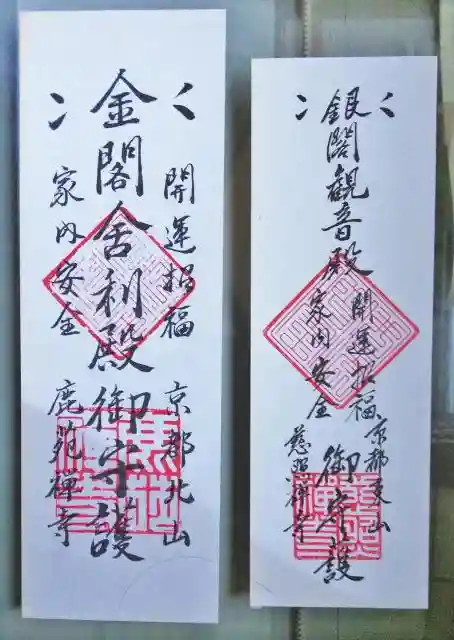 開運招福
京都北山
金閣舎利殿御守護
家内安全
鹿苑禅寺
銀閣観音殿
御守護
開運招福
京都東山
家内安全
慈照禅寺